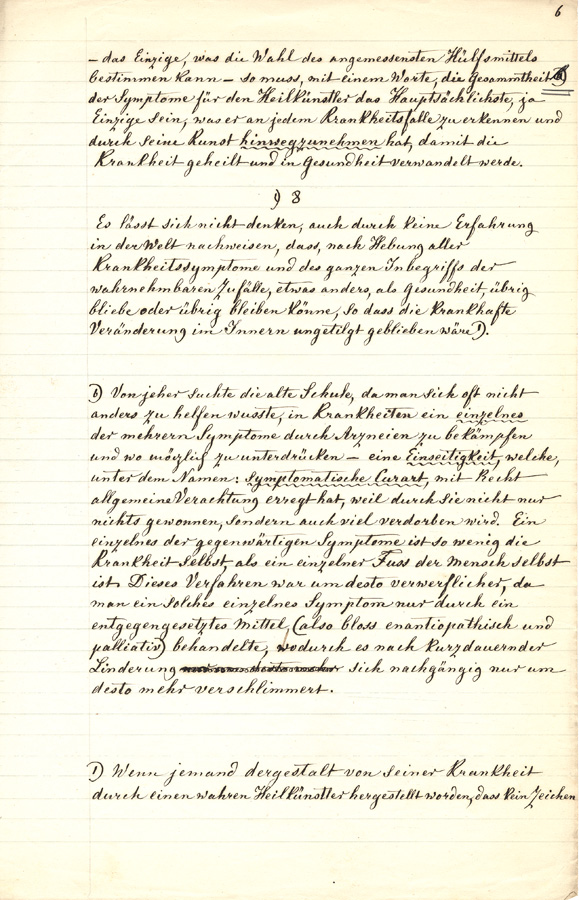 6
– das Einzige, was die Wahl des angemessensten Hülfsmittels
bestimmen kann – so muss, mit einem Worte, die Gesammtheit
der Symptome für den Heilkünstler das Hauptsächlichste, ja
Einzige sein, was er an jedem Krankheitsfalle zu erkennen und
durch seine Kunst hinwegzunehmen hat, damit die
Krankheit geheilt und in Gesundheit verwandelt werde.
) 8
Es lässt sich nicht denken, auch durch keine Erfahrung
in der Welt nachweisen, dass, nach Hebung aller
Krankheitssymptome und des ganzen Inbegriffs der
wahrnehmbaren Zufälle, etwas anders, als Gesundheit, übrig
bliebe oder übrig bleiben könne, so dass die krankhafte
Veränderung im Innern ungetilgt geblieben wäre 1).
6) Von jeher suchte die alte Schule, da man sich oft nicht
anders zu helfen wusste, in Krankheiten ein einzelnes
der mehrern Symptome durch Arzneien zu bekämpfen
und wo möglich zu unterdrücken – eine Einseitigkeit, welche,
unter dem Namen: Symptomatische Curart, mit Recht
allgemeine Verachtung erregt hat, weil durch sie nicht nur
nichts gewonnen, sondern auch viel verdorben wird. Ein
einzelnes der gegenwärtigen Symptome ist so wenig die
Krankheit selbst, als ein einzelner Fuss der Mensch selbst
ist. Dieses Verfahren war um desto verwerflicher, da
man ein solches einzelnes Symptom nur durch ein
entgegengesetztes Mittel (also bloss enantiopathisch und
palliativ) behandelte, wodurch es nach kurzdauernder
Linderung sich nachgängig nur um
desto mehr verschlimmert.
1) Wenn jemand dergestalt von seiner Krankheit
durch einen wahren Heilkünstler hergestellt worden, dass kein Zeichen